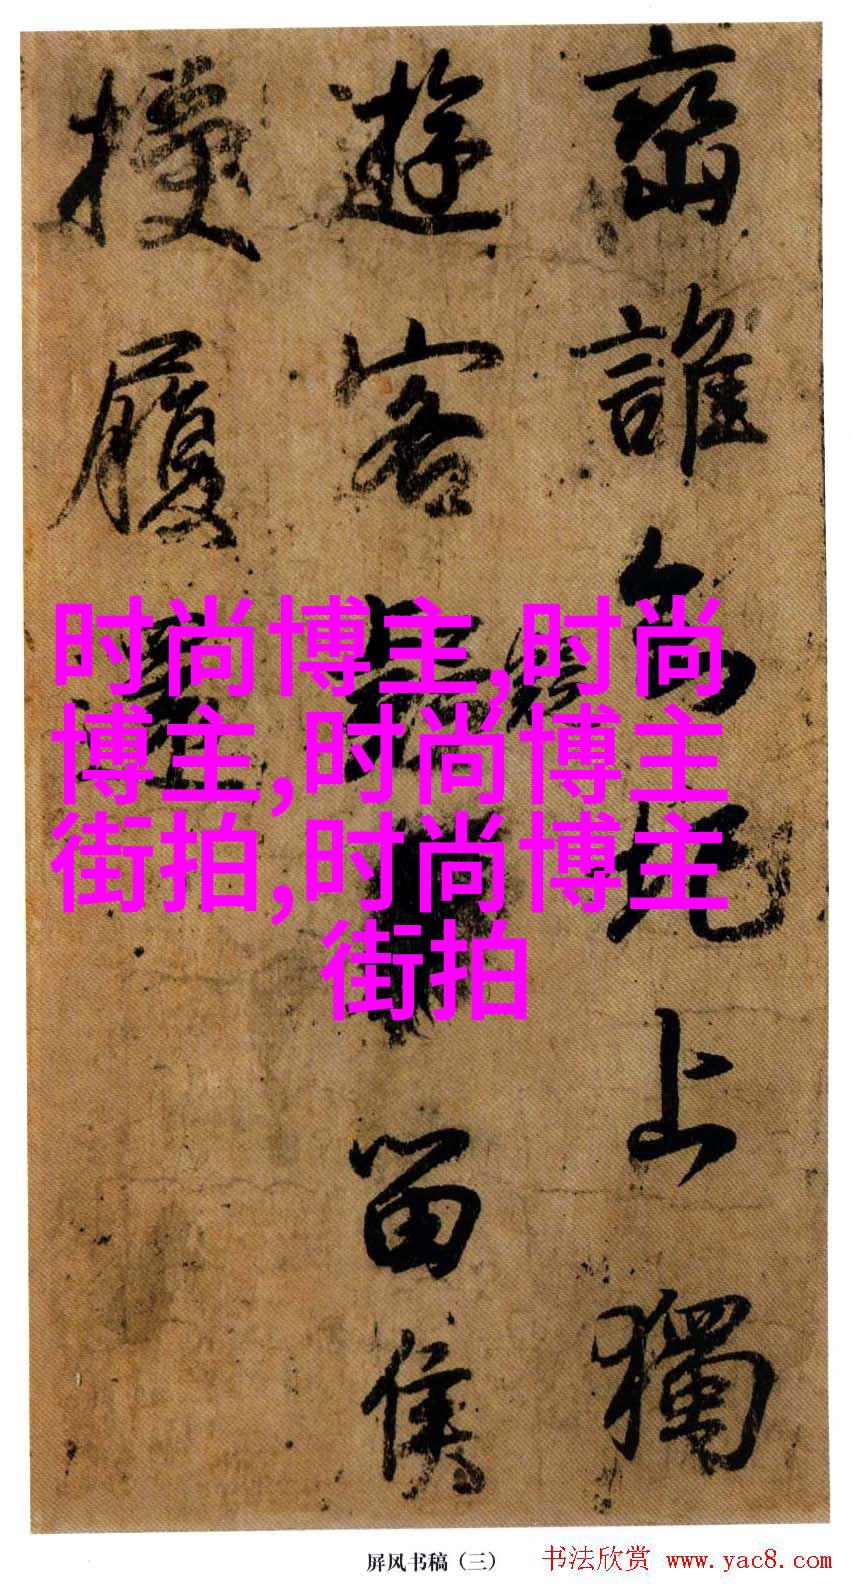 誰圯上獨
遊客留侯
履還
时尚博主,时尚
博主,时尚博主
街拍,时尚博主
街拍
屏风书稿（三）
书法欣赏 www.yac8.com